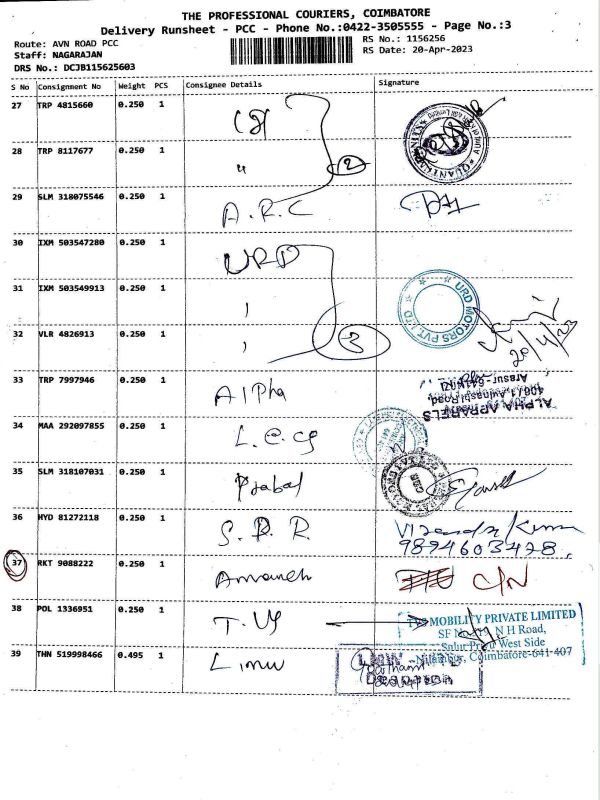 THE PROFESSIONAL COURIERS, COIMBATORE
Delivery Runsheet - PCC - Phone No.:0422-3505555 - Page No.:3
Route: AVN ROAD PCC
Staff: NAGARAJAN
DRS No.: DCJB115625603
RS No.: 1156256
RS Date: 20-Apr-2023
S No Consignment No Weight PCS Consignee Details Signature
27 TRP 4815660 0.250 1
28 TRP 8117677 0.250 1 "
2
29 SLM 318075546 0.250 1 A.R.C
30 IXM 503547280 0.250 1 URD
31 IXM 503549913 0.250 1
URD MOTORS PVT. LTD
20/4/23
32 VLR 4826913 0.250 1
3
33 TRP 7997946 0.250 1 Alpha
ALPHA APPARELS
406/1, Avinashi Road,
Arasur - 641
34 MAA 292097855 0.250 1
35 SLM 318107031 0.250 1 Prabal
36 HYD 81272118 0.250 1 S.R.R
9894603428.
37 RKT 9088222 0.250 1 C/N
38 POL 1336951 0.250 1 T.VS
TVS MOBILITY PRIVATE LIMITED
SF N H Road,
West Side
Coimbatore-641 407
39 THN 519998466 0.495 1